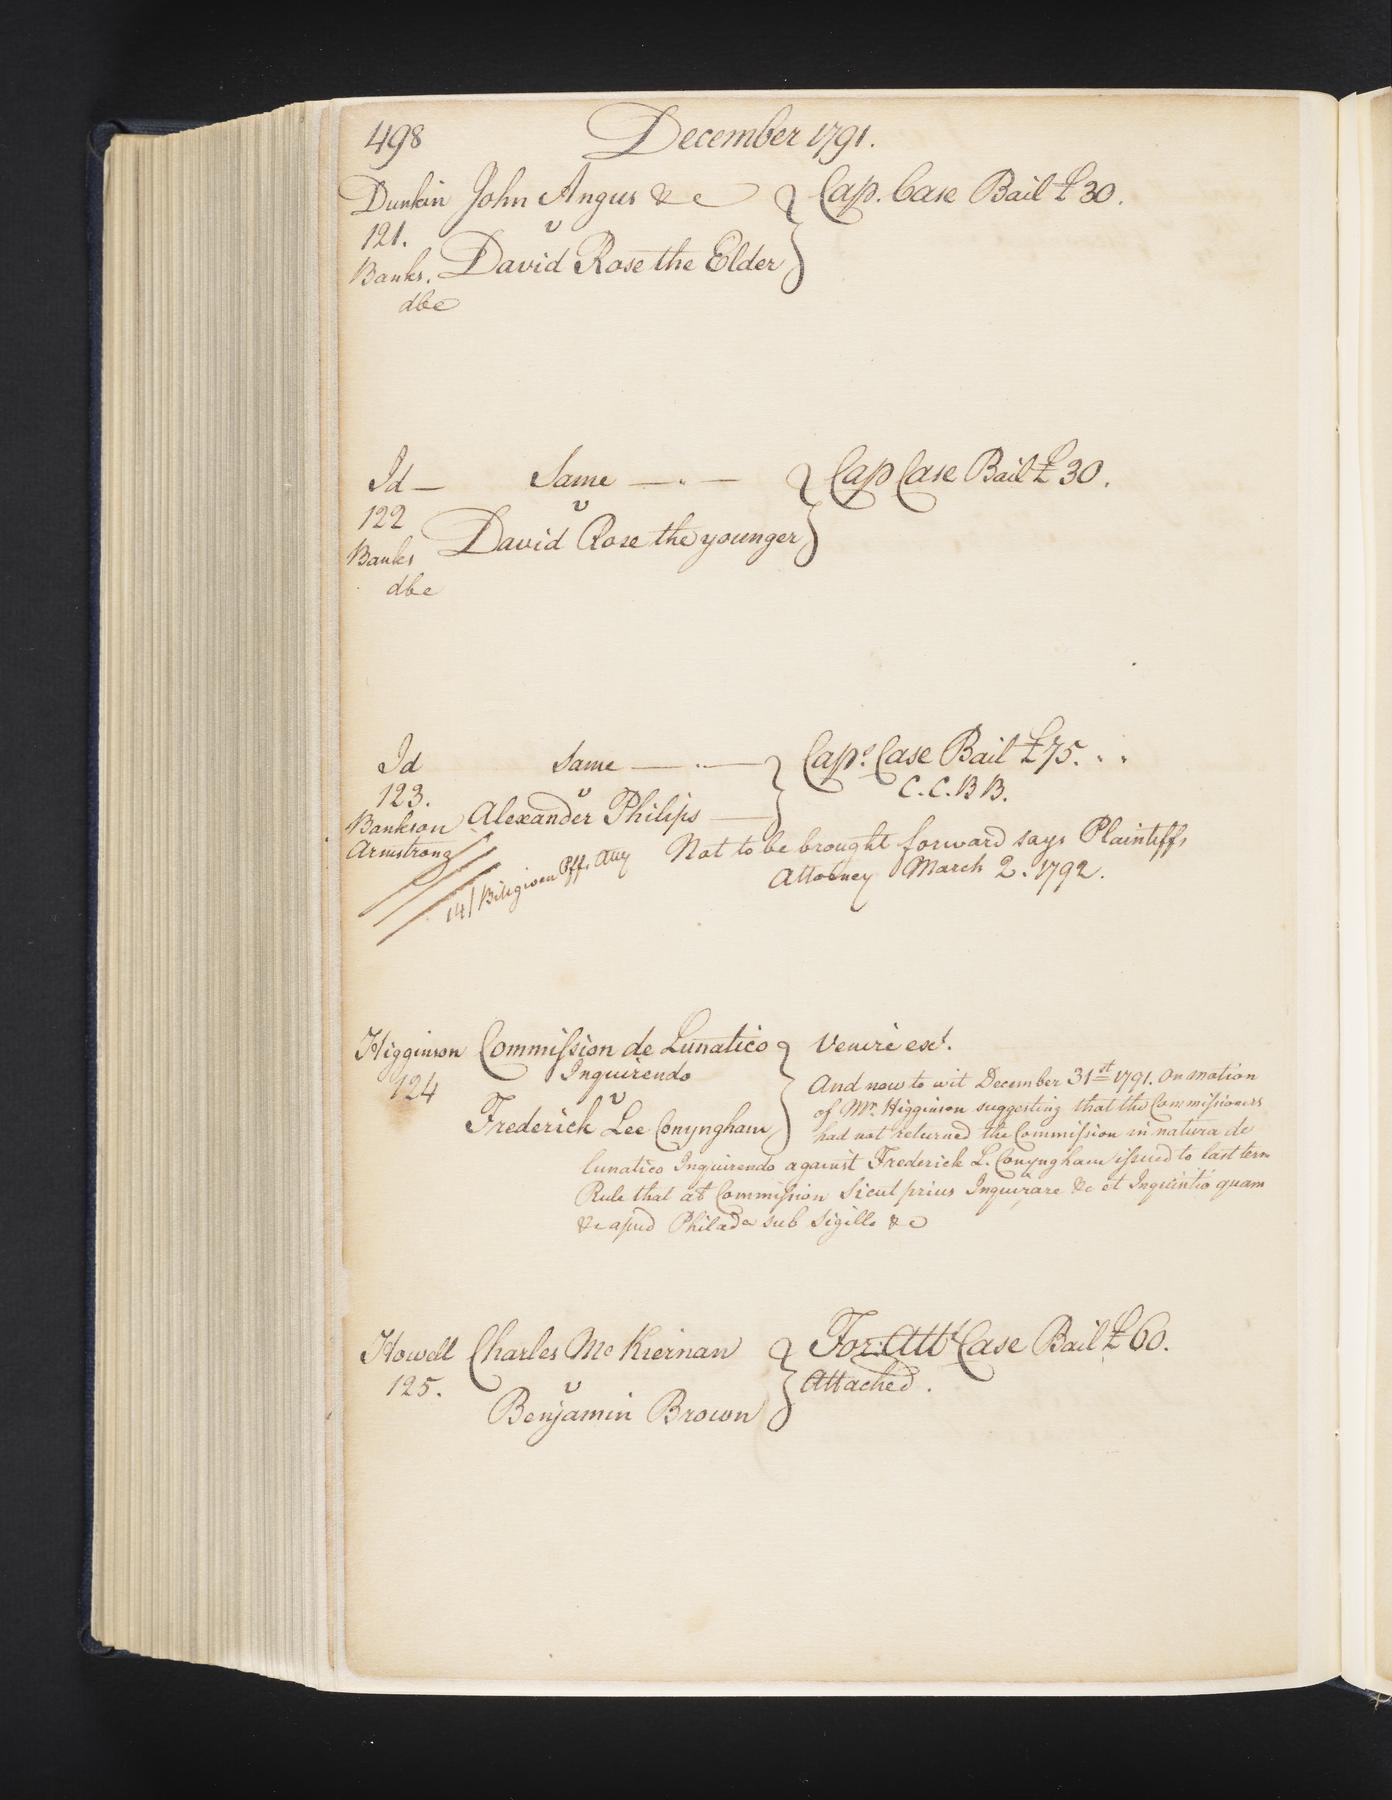 498 December 1791.
Dunkin John Angus &c } Cap. Case Bail £30.
121. v
Banks. David Rose the Elder
dbe
Id — Same — " — } Cap Case Bail £30.
122 v
Banks David Rose the younger
dbe
Id Same — " — } Caps. Case Bail £75. " "
123. v C.C.B B.
Bankson Alexander Philips —
Armstrong Not to be brought forward says Plaintiffs
14/ Bill given Pffs Atty Attorney March 2. 1792.
Higginson Commission de Lunatico } Venire exd.
124 Inquirendo And now to wit December 31st 1791. On motion
v of Mr. Higginson suggesting that the Commissioners
Frederick Lee Conyngham had not returned the Commission in natura de
lunatico Inquirendo against Frederick L. Conyngham issued to last term
Rule that at Commission Sicut prius Inquirare &c et Inquisitio quam
&c apud Philada sub Sigillo &c
Howell Charles McKiernan } For. Att Case Bail £60.
125. v Attached.
Benjamin Brown